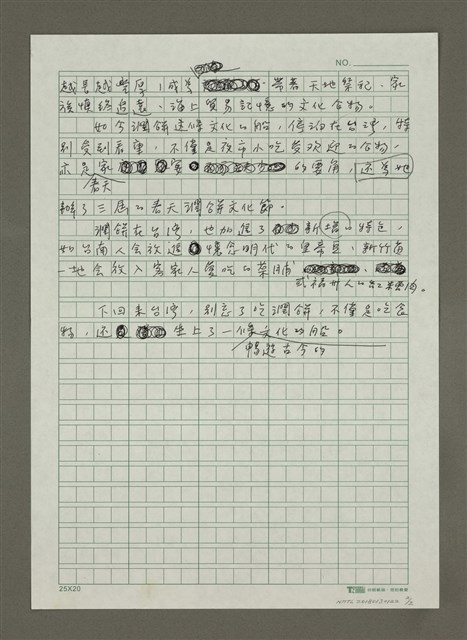 NO.
越長越豐厚，成為帶著天地祭祀、家
族慎終追遠、海上貿易記憶的文化食物。
如今潤餅這條文化的船，停泊在台灣，特
別受到看重，不僅是夜市小吃受歡迎的食物，
亦是家家的要角，還為她
春天
辦了三屆的春天潤餅文化節。
潤餅在台灣，也加進了新的特色，
如台南人會放進懷念明代的皇帝豆，新竹苗
一地會放入客家人愛吃的菜脯
或福州人的紅糟肉。
下回來台灣，別忘了吃潤餅，不僅是吃食
物，還坐上了一條文化的船。
暢遊古今的
25X20